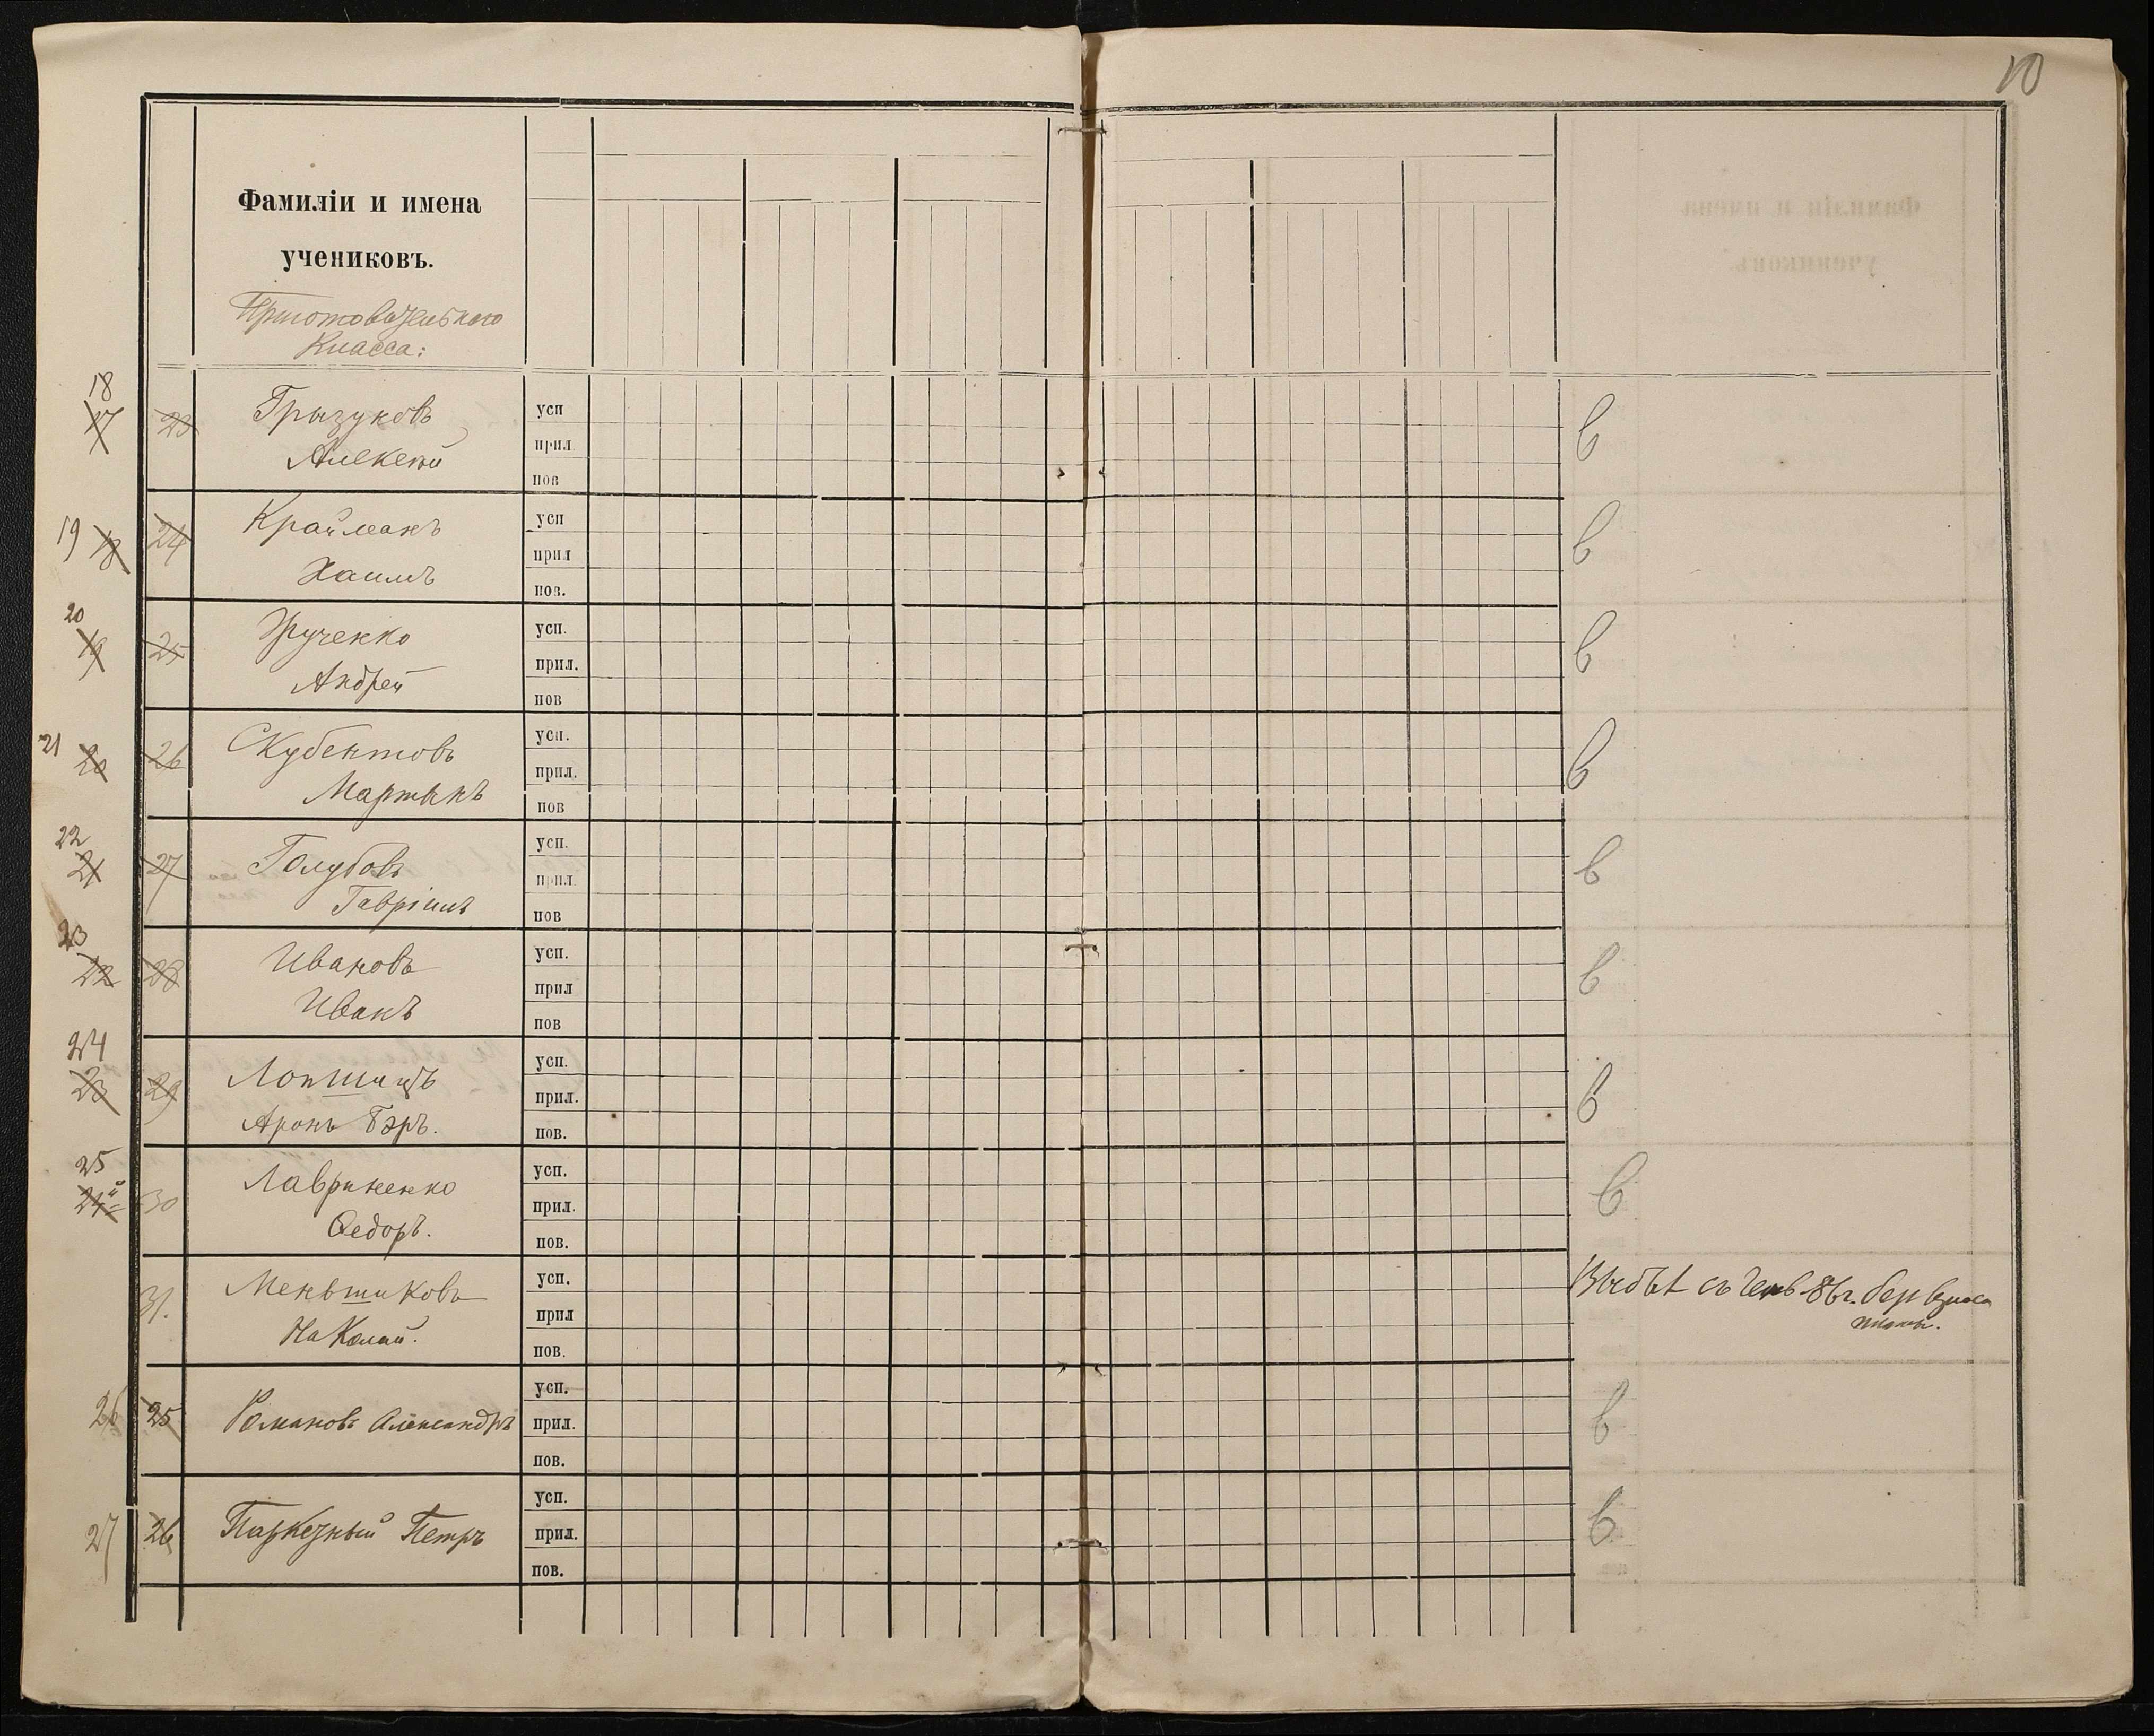 10
Фамиліи и имена
учениковъ.
Приготовительнаго
Класса:
18
17 23 Грызуновъ усп в
Алексѣй прил
пов
19 18 24 Крайманъ усп в
Хаимъ прил
пов.
20
19 25 Андрей усп. в
прил.
пов
21 20 26 Скубентовъ усп. в
Мартынъ прил.
пов
22
21 27 Голубовъ усп. в
Гавріилъ прил
пов
23
22 28 Ивановъ усп. в
Иванъ прил
пов
24
23 29 Лопшицъ усп. в
Аронъ Бэръ. прил.
пов.
25
24й 30 Лавриненко усп. в
Ѳедоръ. прил.
пов.
31. Меньшиковъ усп. съ 86г. без взноса
Николай. прил платы.
пов.
усп.
26 25 Романовъ Александръ прил. в
пов.
усп.
27 26 Петръ прил. в
пов.